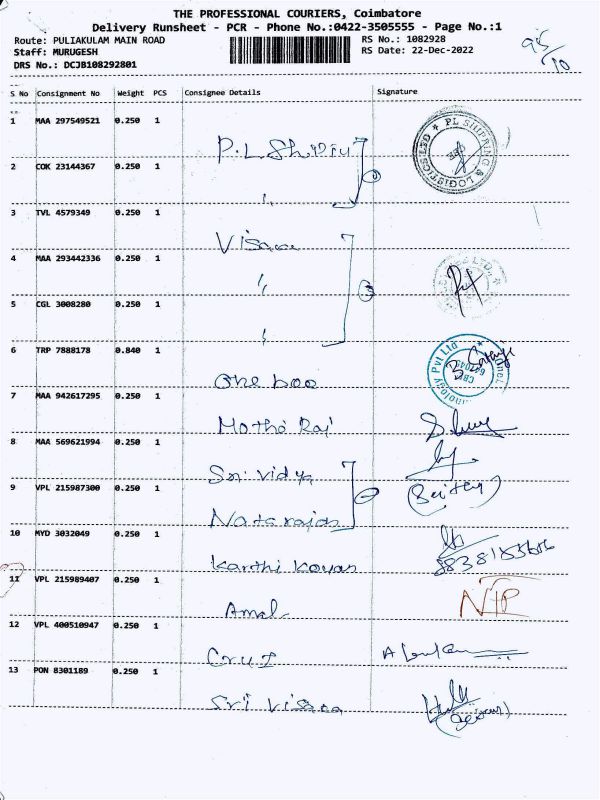 THE PROFESSIONAL COURIERS, Coimbatore
Delivery Runsheet - PCR - Phone No.:0422-3505555 - Page No.:1
Route: PULIAKULAM MAIN ROAD RS No.: 1082928
Staff: MURUGESH RS Date: 22-Dec-2022
DRS No.: DCJB108292801
95/10
S No Consignment No Weight PCS Consignee Details Signature
1 MAA 297549521 0.250 1
P.L Shipiu
PL SHIPPING & LOGISTICS LTD
2 COK 23144367 0.250 1
"
3 TVL 4579349 0.250 1
4 MAA 293442336 0.250 1
"
5 CGL 3008280 0.250 1
"
6 TRP 7888178 0.840 1
One boo
7 MAA 942617295 0.250 1
Motho Raj
8 MAA 569621994 0.250 1
Sri vidya
9 VPL 215987300 0.250 1
Natarajan
10 MYD 3032049 0.250 1
Karthi Koyan
11 VPL 215989407 0.250 1
Amal
12 VPL 400510947 0.250 1
13 PON 8301189 0.250 1
Sri